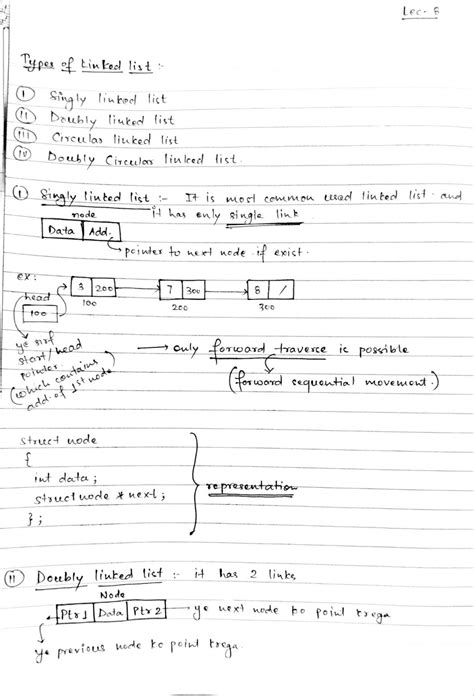 Lec- 8
Types of Linked list :-
(I) Singly linked list
(II) Doubly linked list
(III) Circular linked list
(IV) Doubly Circular linked list.
(I) Singly linked list :- It is most common used linked list and
it has only single link.
node
Data Add.
pointer to next node if exist.
ex:
3 200 7 300 8 /
100 200 300
head
100
ye sirf
start/head
pointer.
(which contains
add. of 1st node)
only forward traverce is possible
(forward sequential movement.)
struct node
{
int data;
struct node * next;
};
representation
(II) Doubly linked list :- it has 2 links
Node
Ptr1 Data Ptr2
ye next node ko point krega
ye previous node ko point krega.